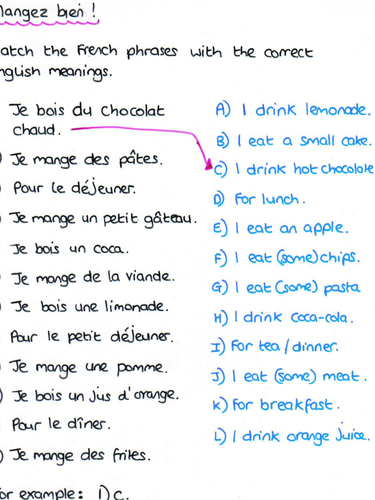 Mangez bien !
atch the French phrases with the correct
nglish meanings.
Je bois du chocolat
chaud.
Je mange des pâtes.
Pour le déjeuner.
Je mange un petit gâteau.
Je bois un coca.
Je mange de la viande.
Je bois une limonade.
Pour le petit déjeuner.
Je mange une pomme.
Je bois un jus d'orange.
Pour le dîner.
Je mange des frites.
or example: 1) C.
A) I drink lemonade.
B) I eat a small cake.
C) I drink hot chocolate
D) For lunch.
E) I eat an apple.
F) I eat (some) chips.
G) I eat (some) pasta
H) I drink coca-cola.
I) For tea/dinner.
J) I eat (some) meat.
K) For breakfast.
L) I drink orange juice.